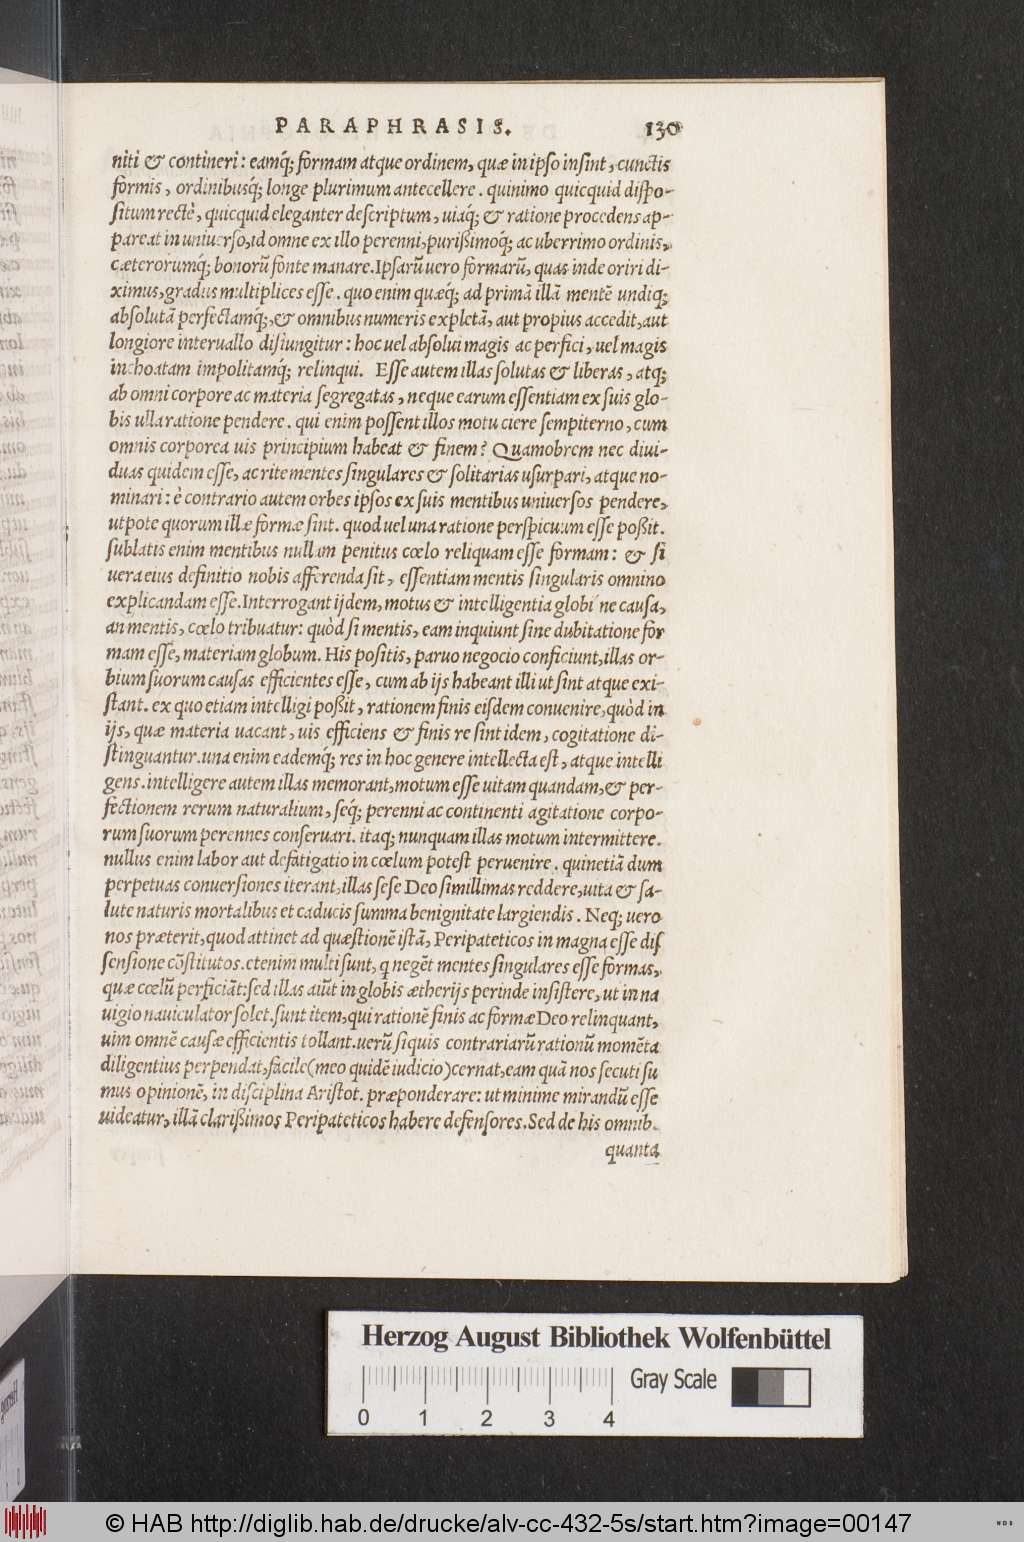 PARAPHRASIS. 130
niti & contineri: eamq́; formam atque ordinem, quæ in ipso insint, cunctis
formis, ordinibusq́; longe plurimum antecellere. quinimo quicquid dispo-
situm rectè, quicquid eleganter descriptum, uiaq́; & ratione procedens ap-
pareat in uniuerso, id omne ex illo perenni, purißimoq́; ac uberrimo ordinis,
cæterorumq́; bonorũ fonte manare. Ipsarũ uero formarũ, quas inde oriri di-
ximus, gradus multiplices esse. quo enim quæq́; ad primã illã mentẽ undiq;
absolutã perfectamq́;, & omnibus numeris expletã, aut propius accedit, aut
longiore interuallo disiungitur: hoc uel absolui magis ac perfici, uel magis
inchoatam impolitamq́; relinqui. Esse autem illas solutas & liberas, atq;
ab omni corpore ac materia segregatas, neque earum essentiam ex suis glo-
bis ulla ratione pendere. qui enim possent illos motu ciere sempiterno, cum
omnis corporea uis principium habeat & finem? Quamobrem nec diui-
duas quidem esse, ac rite mentes singulares & solitarias usurpari, atque no-
minari: è contrario autem orbes ipsos ex suis mentibus uniuersos pendere,
utpote quorum illæ formæ sint. quod uel una ratione perspicuum esse poßit.
sublatis enim mentibus nullam penitus cœlo reliquam esse formam: & si
uera eius definitio nobis afferenda sit, essentiam mentis singularis omnino
explicandam esse. Interrogant ijdem, motus & intelligentia globi ne causa,
an mentis, cœlo tribuatur: quòd si mentis, eam inquiunt sine dubitatione for
mam esse, materiam globum. His positis, paruo negocio conficiunt, illas or-
bium suorum causas efficientes esse, cum ab ijs habeant illi ut sint atque exi-
stant. ex quo etiam intelligi poßit, rationem finis eisdem conuenire, quòd in
ijs, quæ materia uacant, uis efficiens & finis re sint idem, cogitatione di-
stinguantur. una enim eademq́; res in hoc genere intellecta est, atque intelli
gens. intelligere autem illas memorant, motum esse uitam quandam, & per-
fectionem rerum naturalium, seq́; perenni ac continenti agitatione corpo-
rum suorum perennes conseruari. itaq; nunquam illas motum intermittere.
nullus enim labor aut defatigatio in cœlum potest peruenire. quinetiã dum
perpetuas conuersiones iterant, illas sese Deo simillimas reddere, uita & sa-
lute naturis mortalibus et caducis summa benignitate largiendis. Neq; uero
nos præterit, quod attinet ad quæstionẽ istã, Peripateticos in magna esse dis
sensione cõstitutos. etenim multi sunt, q negẽt mentes singulares esse formas,
quæ cœlũ perficiãt: sed illas aiũt in globis ætherijs perinde insistere, ut in na
uigio nauiculator solet. sunt item, qui rationẽ finis ac formæ Deo relinquant,
uim omnẽ causæ efficientis tollant. uerũ si quis contrariarũ rationũ momẽta
diligentius perpendat, facile (meo quidẽ iudicio) cernat, eam quã nos secuti su
mus opinionẽ, in disciplina Aristot. præponderare: ut minime mirandũ esse
uideatur, illã clarißimos Peripateticos habere defensores. Sed de his omnib.
quanta
Herzog August Bibliothek Wolfenbüttel
Gray Scale
0 1 2 3 4
© HAB http://diglib.hab.de/drucke/alv-cc-432-5s/start.htm?image=00147